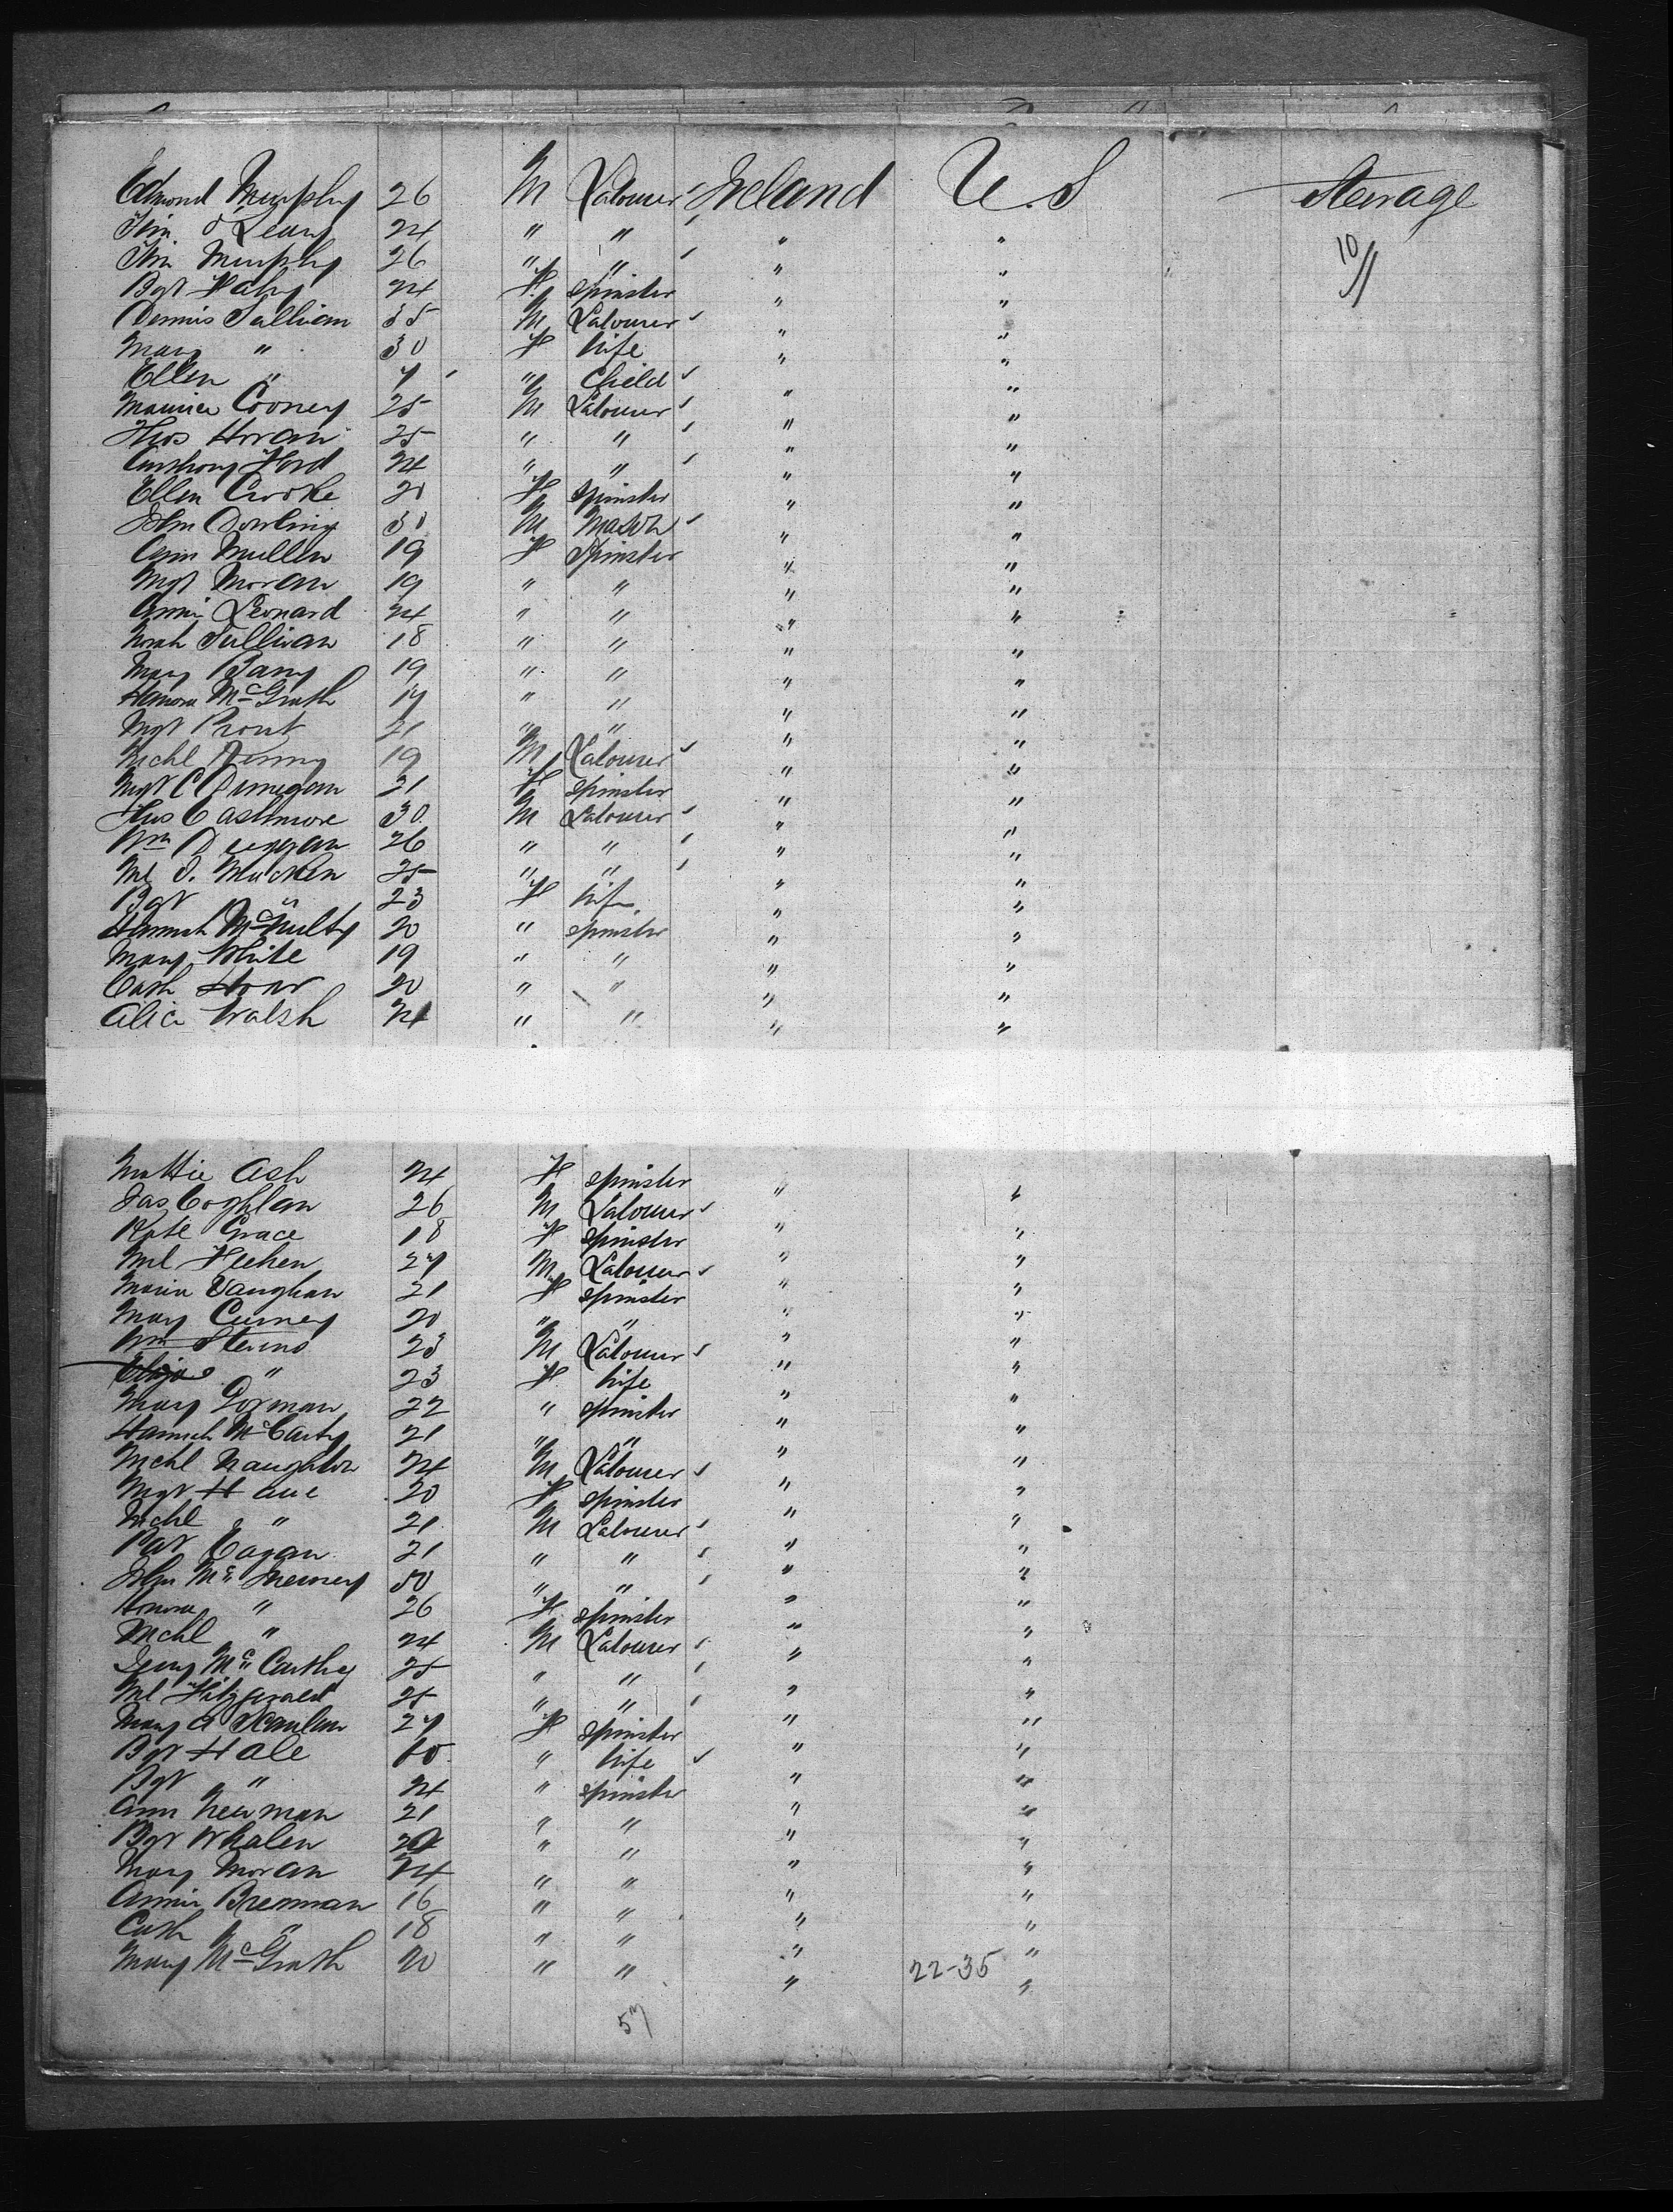 Edmond Murphy 26 M Labourer Ireland U.S Steerage
Tim O Leary 24 " " " "
Tim Murphy 26 " " " " 10/11
Bgt Fahy 24 F Spinster " "
Dennis Sullivan 35 M Labourer " "
Mary " 30 F Wife " "
Ellen " 7 " Child " "
Maurice Cooney 25 M Labourer " "
Thos Horan 25 " " " "
Anthony Ford 24 " " " "
Ellen Crooke 20 F Spinster " "
John Dowling 30 M Mason " "
Ann Mullen 19 F Spinster " "
Mgt Moran 19 " " " "
Annie Leonard 24 " " " "
Norah Sullivan 18 " " " "
Mary Barry 19 " " " "
Hanora McGrath 17 " " " "
Mgt Prout 21 " " " "
Michl Denny 19 M Labourer " "
Mgt C Dinnegan 21 F Spinster " "
Thos Cashmore 30 M Labourer " "
Wm Duggan 26 " " " "
Ml O. Macken 25 " " " "
Bgt " 23 F Wife " "
Hannah McNulty 20 " Spinster " "
Mary White 19 " " " "
Cath Hoar 20 " " " "
Alice Walsh 24 " " " "
Mattie Ash 24 F Spinster " "
Jas Coghlan 26 M Labourer " "
Kate Grace 18 F Spinster " "
Ml Heehen 27 M Labourer " "
Maria Vaughan 21 F Spinster " "
Mary Curney 20 " " " "
Wm Sterns 23 M Labourer " "
Eliza " 23 F Wife " "
Mary Dorman 22 " Spinster " "
Hannah McCarty 21 " " " "
Michl Naughton 24 M Labourer " "
Mgt Haue 20 F Spinster " "
Michl " 21 M Labourer " "
Pat Eagan 21 " " " "
John Mc Inerney 50 " " " "
Honora " 26 F Spinster " "
Michl " 24 M Labourer " "
Mc Carthy 25 " " " "
Ml Fitzgerald 25 " " " "
Mary A Scanlan 27 F Spinster " "
Bgt Hale 60 " Wife " "
Bgt " 24 " Spinster " "
Ann Newman 21 " " " "
Bgt Whalen " " " "
Mary Moran 24 " " " "
Annie Brennan 16 " " " "
Cath " 18 " " " "
Mary McGrath 20 " " " 22-35 "
57